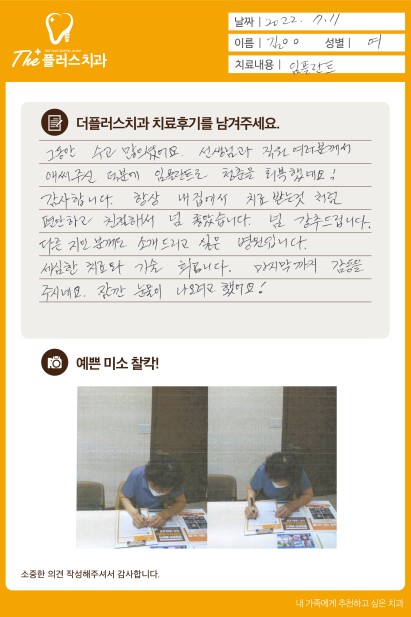 The 플러스치과
날짜 | 2022. 7. 11
이름 | 김○○ 성별 | 여
치료내용 | 임플란트
더플러스치과 치료후기를 남겨주세요.
그동안 수고 많으셨어요. 선생님과 직원 여러분께서
애써주신 덕분에 임플란트로 청춘을 회복했네요!
감사합니다. 항상 내 집에서 치료 받는것 처럼
편안하고 친절하셔서 넘 좋았습니다. 널 강추드립니다.
다른 지인 분께도 소개드리고 싶은 병원입니다.
세심한 치료와 가슴 뛰립니다. 마지막까지 감동을
주시네요. 잠깐 눈물이 나오려고 했어요!
예쁜 미소 찰칵!
소중한 의견 작성해주셔서 감사합니다.
내 가족에게 추천하고 싶은 치과